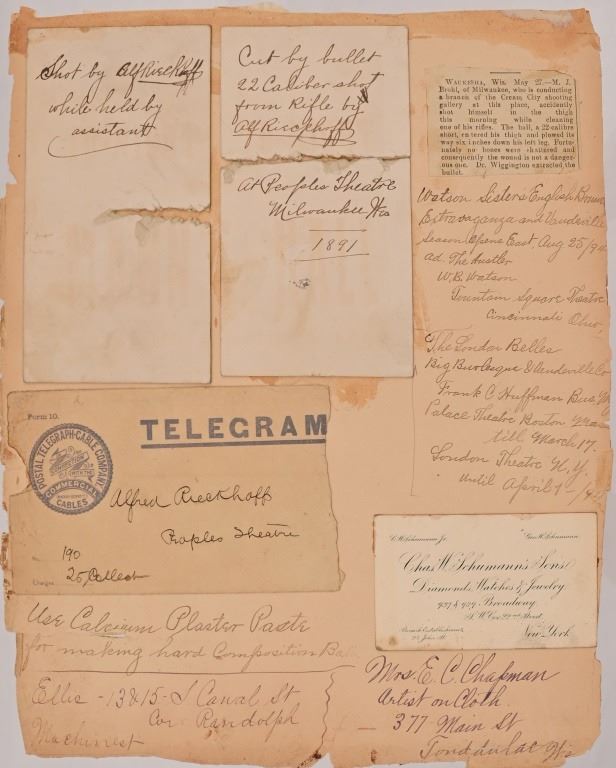 Shot by Alf Rieckhoff
while held by
assistant
Cut by bullet
22 Caliber shot
from Rifle by
Alf Rieckhoff
At Peoples Theatre
Milwaukee Wis
1891
WAUKESHA, Wis. May 27.—M. J.
Brohl, of Milwaukee, who is conducting
a branch of the Cream City shooting
gallery at this place, accidently
shot himself in the thigh
this morning while cleaning
one of his rifles. The ball, a 22-calibre
short, entered his thigh and plowed its
way six inches down his left leg. Fortu-
nately no bones were shattered and
consequently the wound is not a danger-
ous one. Dr. Wiggington extracted the
bullet.
Watson Sisters English
Extravaganza and Vaudeville
Season Opens East. Aug 25/94
ad. The Hustler
W. B. Watson
Fountain Square Theatre
Cincinnati Ohio
The London Belles
Big Burlesque & Vaudeville Co
Frank C Huffman Bus.
Palace Theatre Boston Mass
till March 17.
London Theatre N.Y.
until April 1
Form 10.
TELEGRAM
POSTAL TELEGRAPH-CABLE COMPANY
COMMERCIAL
CABLES
Alfred Rieckhoff
Peoples Theatre
190
Charges 25 Collect
C. W. Schumann Jr. Geo. H. Schumann
Chas. W. Schumann's Sons
Diamonds, Watches & Jewelry
937 & 939 Broadway
S. W. Cor. 22nd Street
New York
Use Calcium Plaster Paste
for making hard Composition
Ellis - 13 & 15 - S Canal St
Cor Randolph
Machinest
Mrs. E. C. Chapman
Artist on Cloth
377 Main St
Fond du Lac Wis